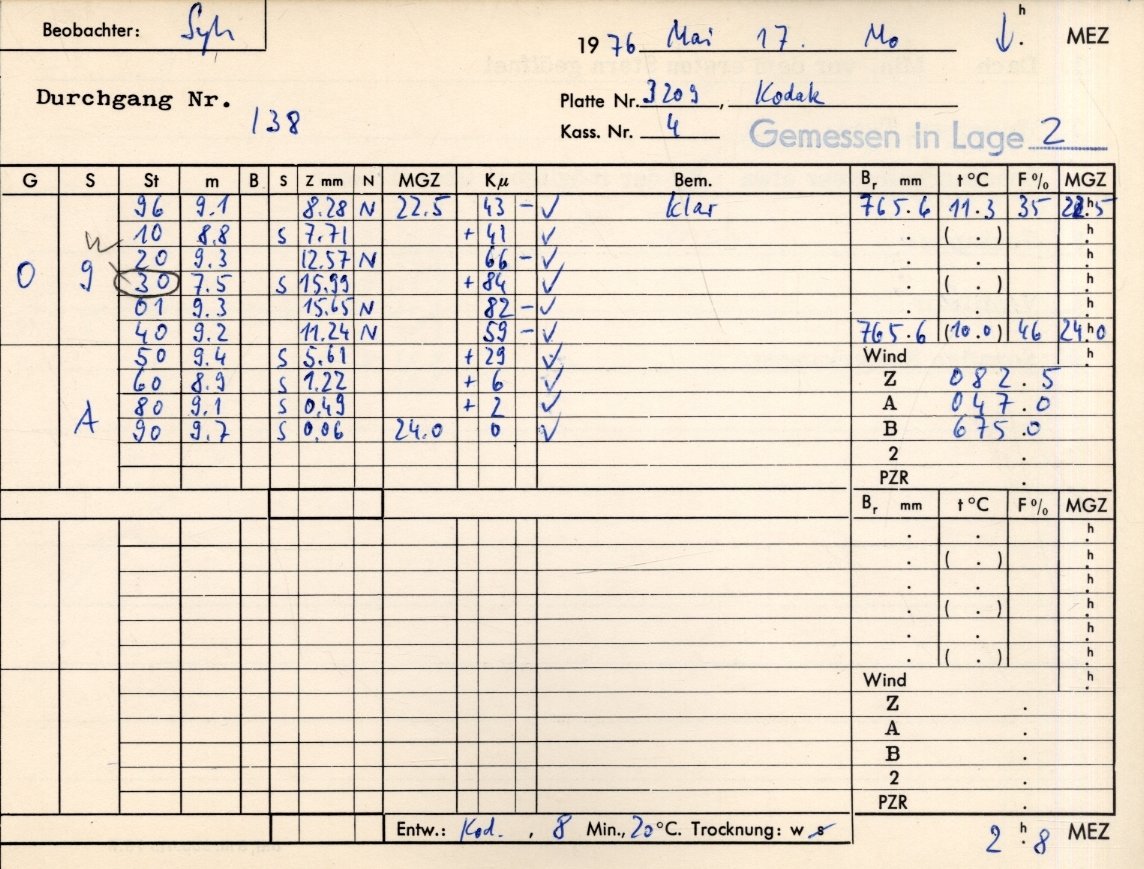 Beobachter: Syh
1976 Mai 17. Mo ↓ h. MEZ
Durchgang Nr. 138
Platte Nr. 3209, Kodak
Kass. Nr. 4
Gemessen in Lage 2
G S St m B S Z mm N MGZ Kμ Bem. Br mm t °C F % MGZ
96 9.1 8.28 N 22.5 43 – ✓ klar 765.6 11.3 35 22.h5
W 10 8.8 S 7.71 + 41 ✓ . ( . ) h.
20 9.3 12.57 N 66 – ✓ . . h.
0 9 30 7.5 S 15.99 + 84 ✓ . ( . ) h.
01 9.3 15.65 N 82 – ✓ . . h.
40 9.2 11.24 N 59 – ✓ 765.6 (10.0) 46 24.h0
50 9.4 S 5.61 + 29 ✓ Wind h.
60 8.9 S 1.22 + 6 ✓ Z 082.5
A 80 9.1 S 0.49 + 2 ✓ A 047.0
90 9.7 S 0.06 24.0 0 ✓ B 675.0
2 .
PZR .
Br mm t °C F % MGZ
. . h.
. ( . ) h.
. . h.
. ( . ) h.
. . h.
. ( . ) h.
Wind h.
Z .
A .
B .
2 .
PZR .
Entw.: Kod. , 8 Min., 20 °C. Trocknung: w s
2 h. 8 MEZ